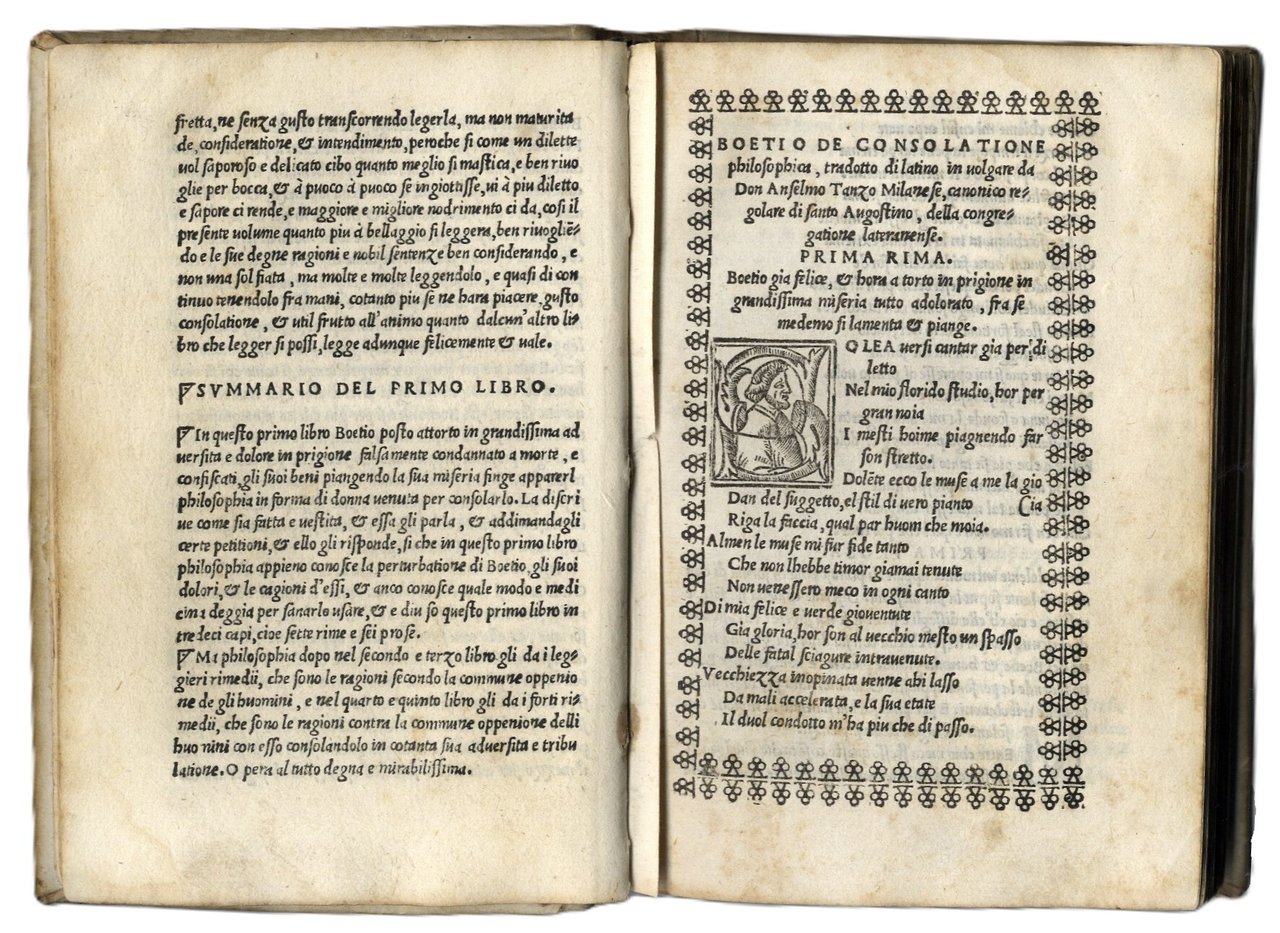 fretta, ne senza gusto transcorrendo legerla, ma non maturita
de, consideratione, & intendimento, peroche si come un dilette
uol saporoso e delicato cibo quanto meglio si mastica, e ben riuo
glie per bocca, & à puoco à puoco se ingiottisse, ui à piu diletto
e sapore ci rende, e maggiore e migliore nodrimento ci da, cosi il
presente uolume quanto piu à bellaggio si leggera, ben riuogliē-
do e le sue degne ragioni e nobil sentenze ben considerando, e
non una sol fiata, ma molte e molte leggendolo, e quasi di con
tinuo tenendolo fra mani, cotanto piu se ne hara piacere, gusto
consolatione, & util frutto all'animo quanto dalcun'altro li-
bro che legger si possi, legge adunque felicemente & uale.
SVMMARIO DEL PRIMO LIBRO.
In questo primo libro Boetio posto attorto in grandissima ad
uersita e dolore in prigione falsamente condannato a morte, e
confiscati gli suoi beni piangendo la sua miseria finge apparerl
philosophia in forma di donna uenuta per consolarlo. La discri
ue come sia fatta e uestita, & essa gli parla, & addimandagli
certe petitioni, & ello gli risponde, si che in questo primo libro
philosophia appieno conosce la perturbatione di Boetio, gli suoi
dolori, & le cagioni d'essi, & anco conosce quale modo e medi
cina deggia per sanarlo usare, & e diuiso questo primo libro in
tredeci capi, cioe sette rime e sei prose.
Ma philosophia dopo nel secondo e terzo libro gli da i leg-
gieri rimedii, che sono le ragioni secondo la commune oppenio
ne de gli huomini, e nel quarto e quinto libro gli da i forti ri-
medii, che sono le ragioni contra la commune oppenione delli
huomini con esso consolandolo in cotanta sua aduersita e tribu
latione. O pera al tutto degna e mirabilissima.
BOETIO DE CONSOLATIONE
philosophica, tradotto di latino in uolgare da
Don Anselmo Tanzo Milanese, canonico re-
golare di santo Augostino, della congre-
gatione lateranense.
PRIMA RIMA.
Boetio gia felice, & hora a torto in prigione in
grandissima miseria tutto adolorato, fra se
medemo si lamenta & piange.
QLEA uersi cantar gia per di
letto
Nel mio florido studio, hor per
gran noia
I mesti hoime piagnendo far
son stretto.
Dolēte ecco le muse a me la gio
Dan del suggetto, el stil di uero pianto (cia
Riga la faccia, qual par huom che moia.
Almen le muse mi fur fide tanto
Che non lhebbe timor giamai tenute
Non uenessero meco in ogni canto
Di mia felice e uerde gioventute
Gia gloria, hor son al uecchio mesto un spasso
Delle fatal sciagure intrauenute.
Vecchiezza inopinata uenne ahi lasso
Da mali accelerata, e la sua etate
Il duol condotto m'ha piu che di passo.